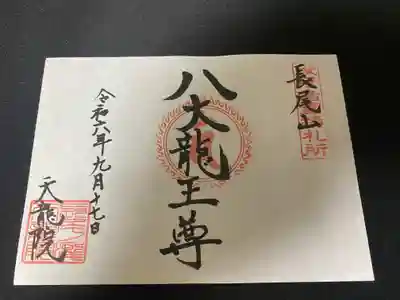 長尾山
八大龍王尊
令和六年九月十七日
天龍院